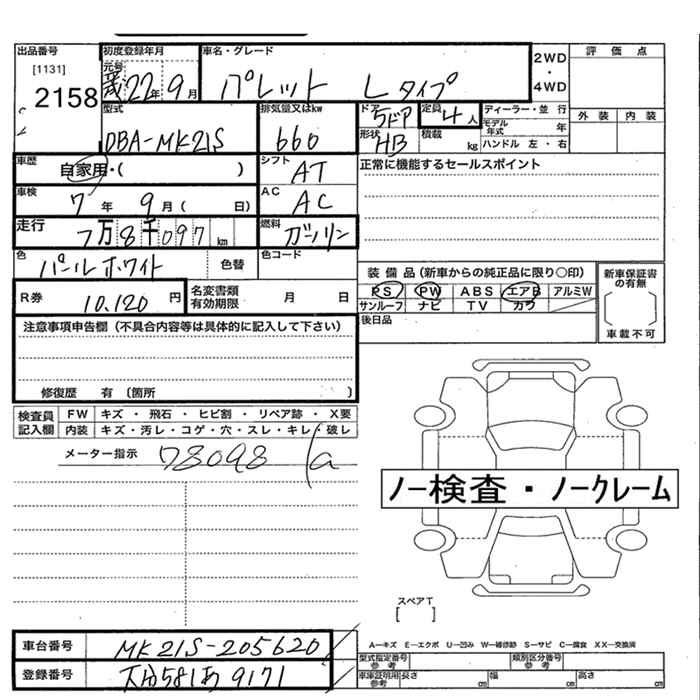 出品番号 初度登録年月 車名・グレード 2WD・4WD 評価点
[1131] 元号
2158 22年 9月 パレット Lタイプ
型式 排気量又はkw ドア 定員 ディーラー・並行 外装 内装
DBA-MK21S 660 5ドア 4人 モデル年式 年
形状 HB 積載 kg ハンドル 左・右
車歴 自家用・( ) シフト AT 正常に機能するセールスポイント
車検 7年 9月( 日) AC AC
走行 7万8千097km 燃料 ガソリン
色 パールホワイト 色替 色コード
装備品(新車からの純正品に限り○印) 新車保証書の有無
R券 10,120円 名変書類有効期限 月 日 PS PW ABS エアB アルミW
サンルーフ ナビ TV カワ
後日品 車載不可
注意事項申告欄(不具合内容等は具体的に記入して下さい)
修復歴 有(箇所 )
検査員記入欄 FW キズ・飛石・ヒビ割・リペア跡・X要
内装 キズ・汚レ・コゲ・穴・スレ・キレ・破レ
メーター指示 78098
ノー検査・ノークレーム
スペアT
[ ]
車台番号 MK21S-205620
A−キズ E−エクボ U−凹み W−補修跡 S−サビ C−腐食 XX−交換済
型式指定番号 参考 類別区分番号 参考
登録番号 581あ9171
車庫証明用 参考 長さ cm 幅 cm 高さ cm